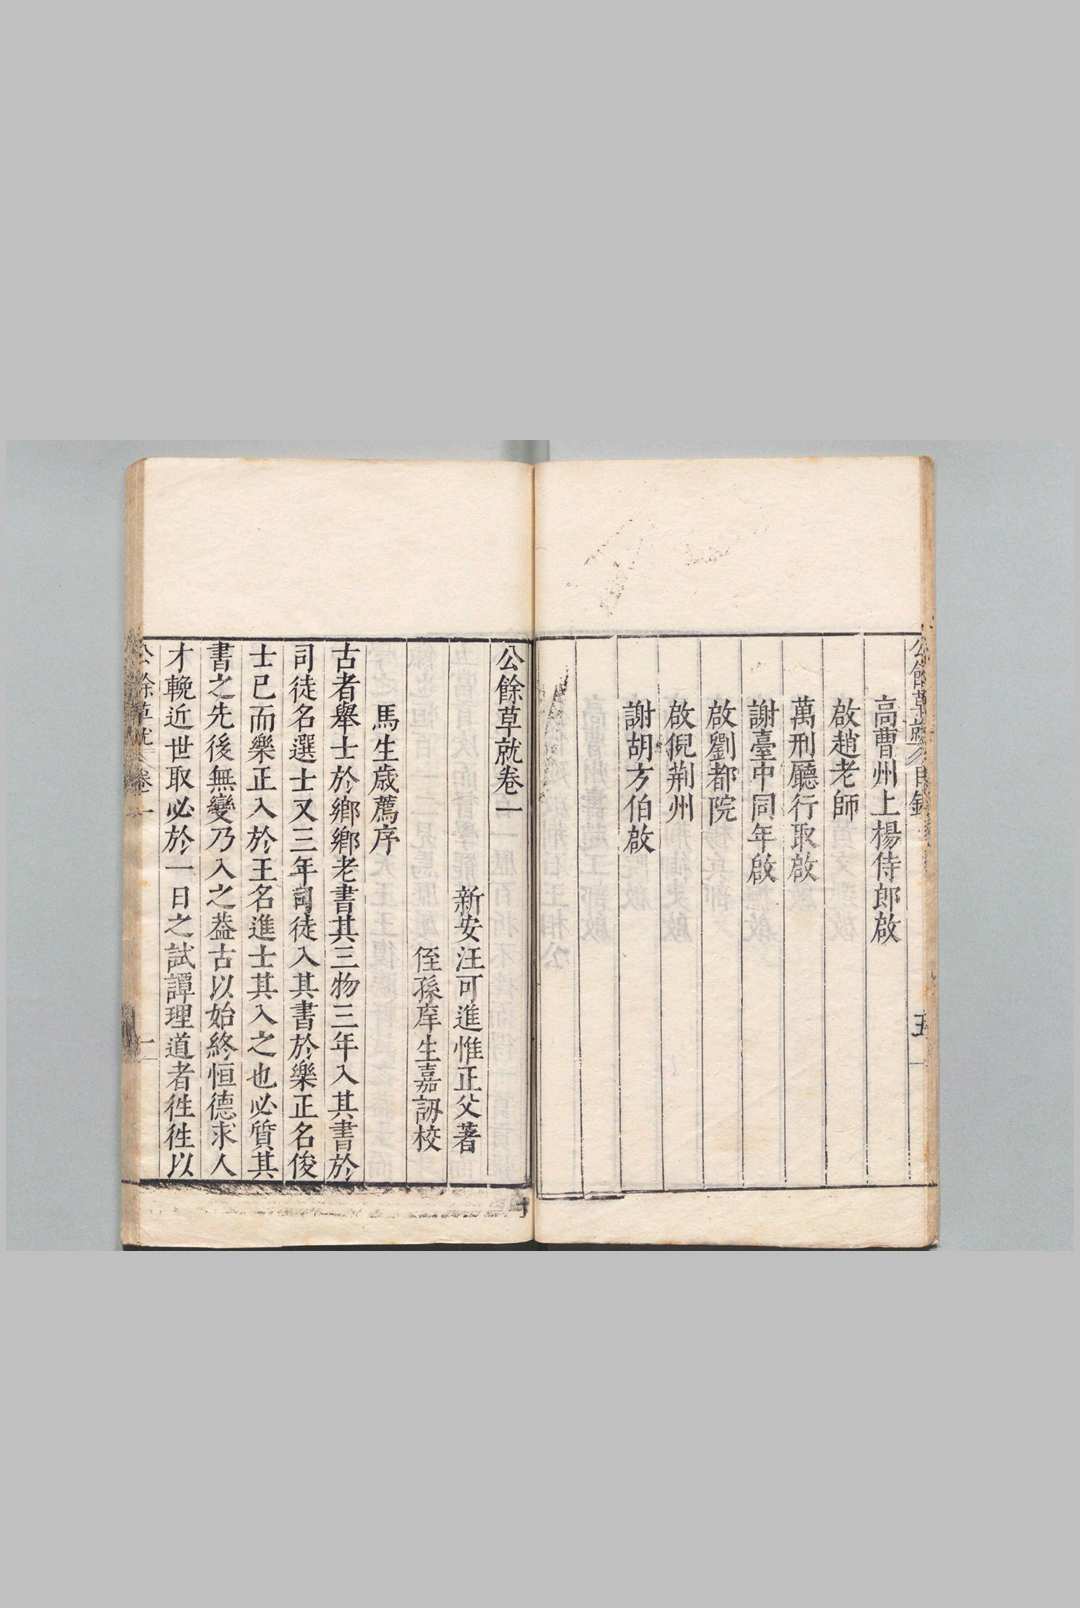 高曹州上楊侍郎啟
啟趙老師
萬刑廳行取啟
謝臺中同年啟
啟劉都院
啟倪荆州
謝胡方伯啟
五
公餘草就卷一
新安汪可進惟正父著
侄孫庠生嘉謅校
馬生歲薦序
古者舉士於鄉鄉老書其三物三年入其書於
司徒名選士又三年司徒入其書於樂正名俊
士已而樂正入於王名進士其入之也必質其
書之先後無變乃入之葢古以始終恒德求人
才輓近世取必於一日之試譚理道者徃徃以
公餘草就 卷一
一